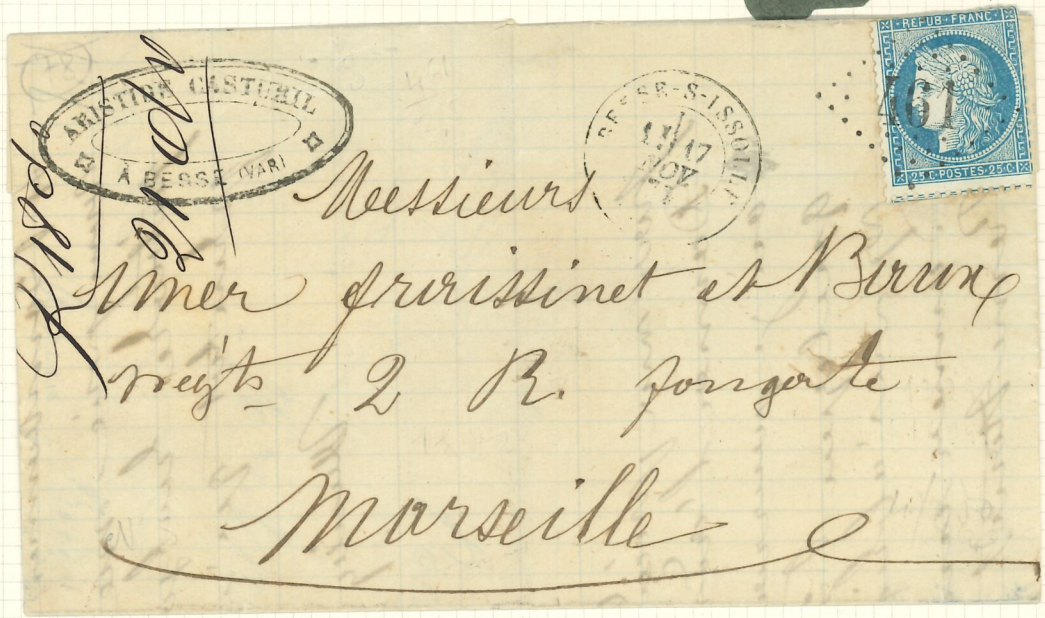 ARISTIDE CASTUEIL
À BESSE (VAR)
R 18 d
21 d
BESSE-S-ISSOLE
17
NOV
REPUB·FRANC
461
25 C·POSTES·25 C
Messieurs
fraissinet et Baux
négts 2 R. fongate
Marseille